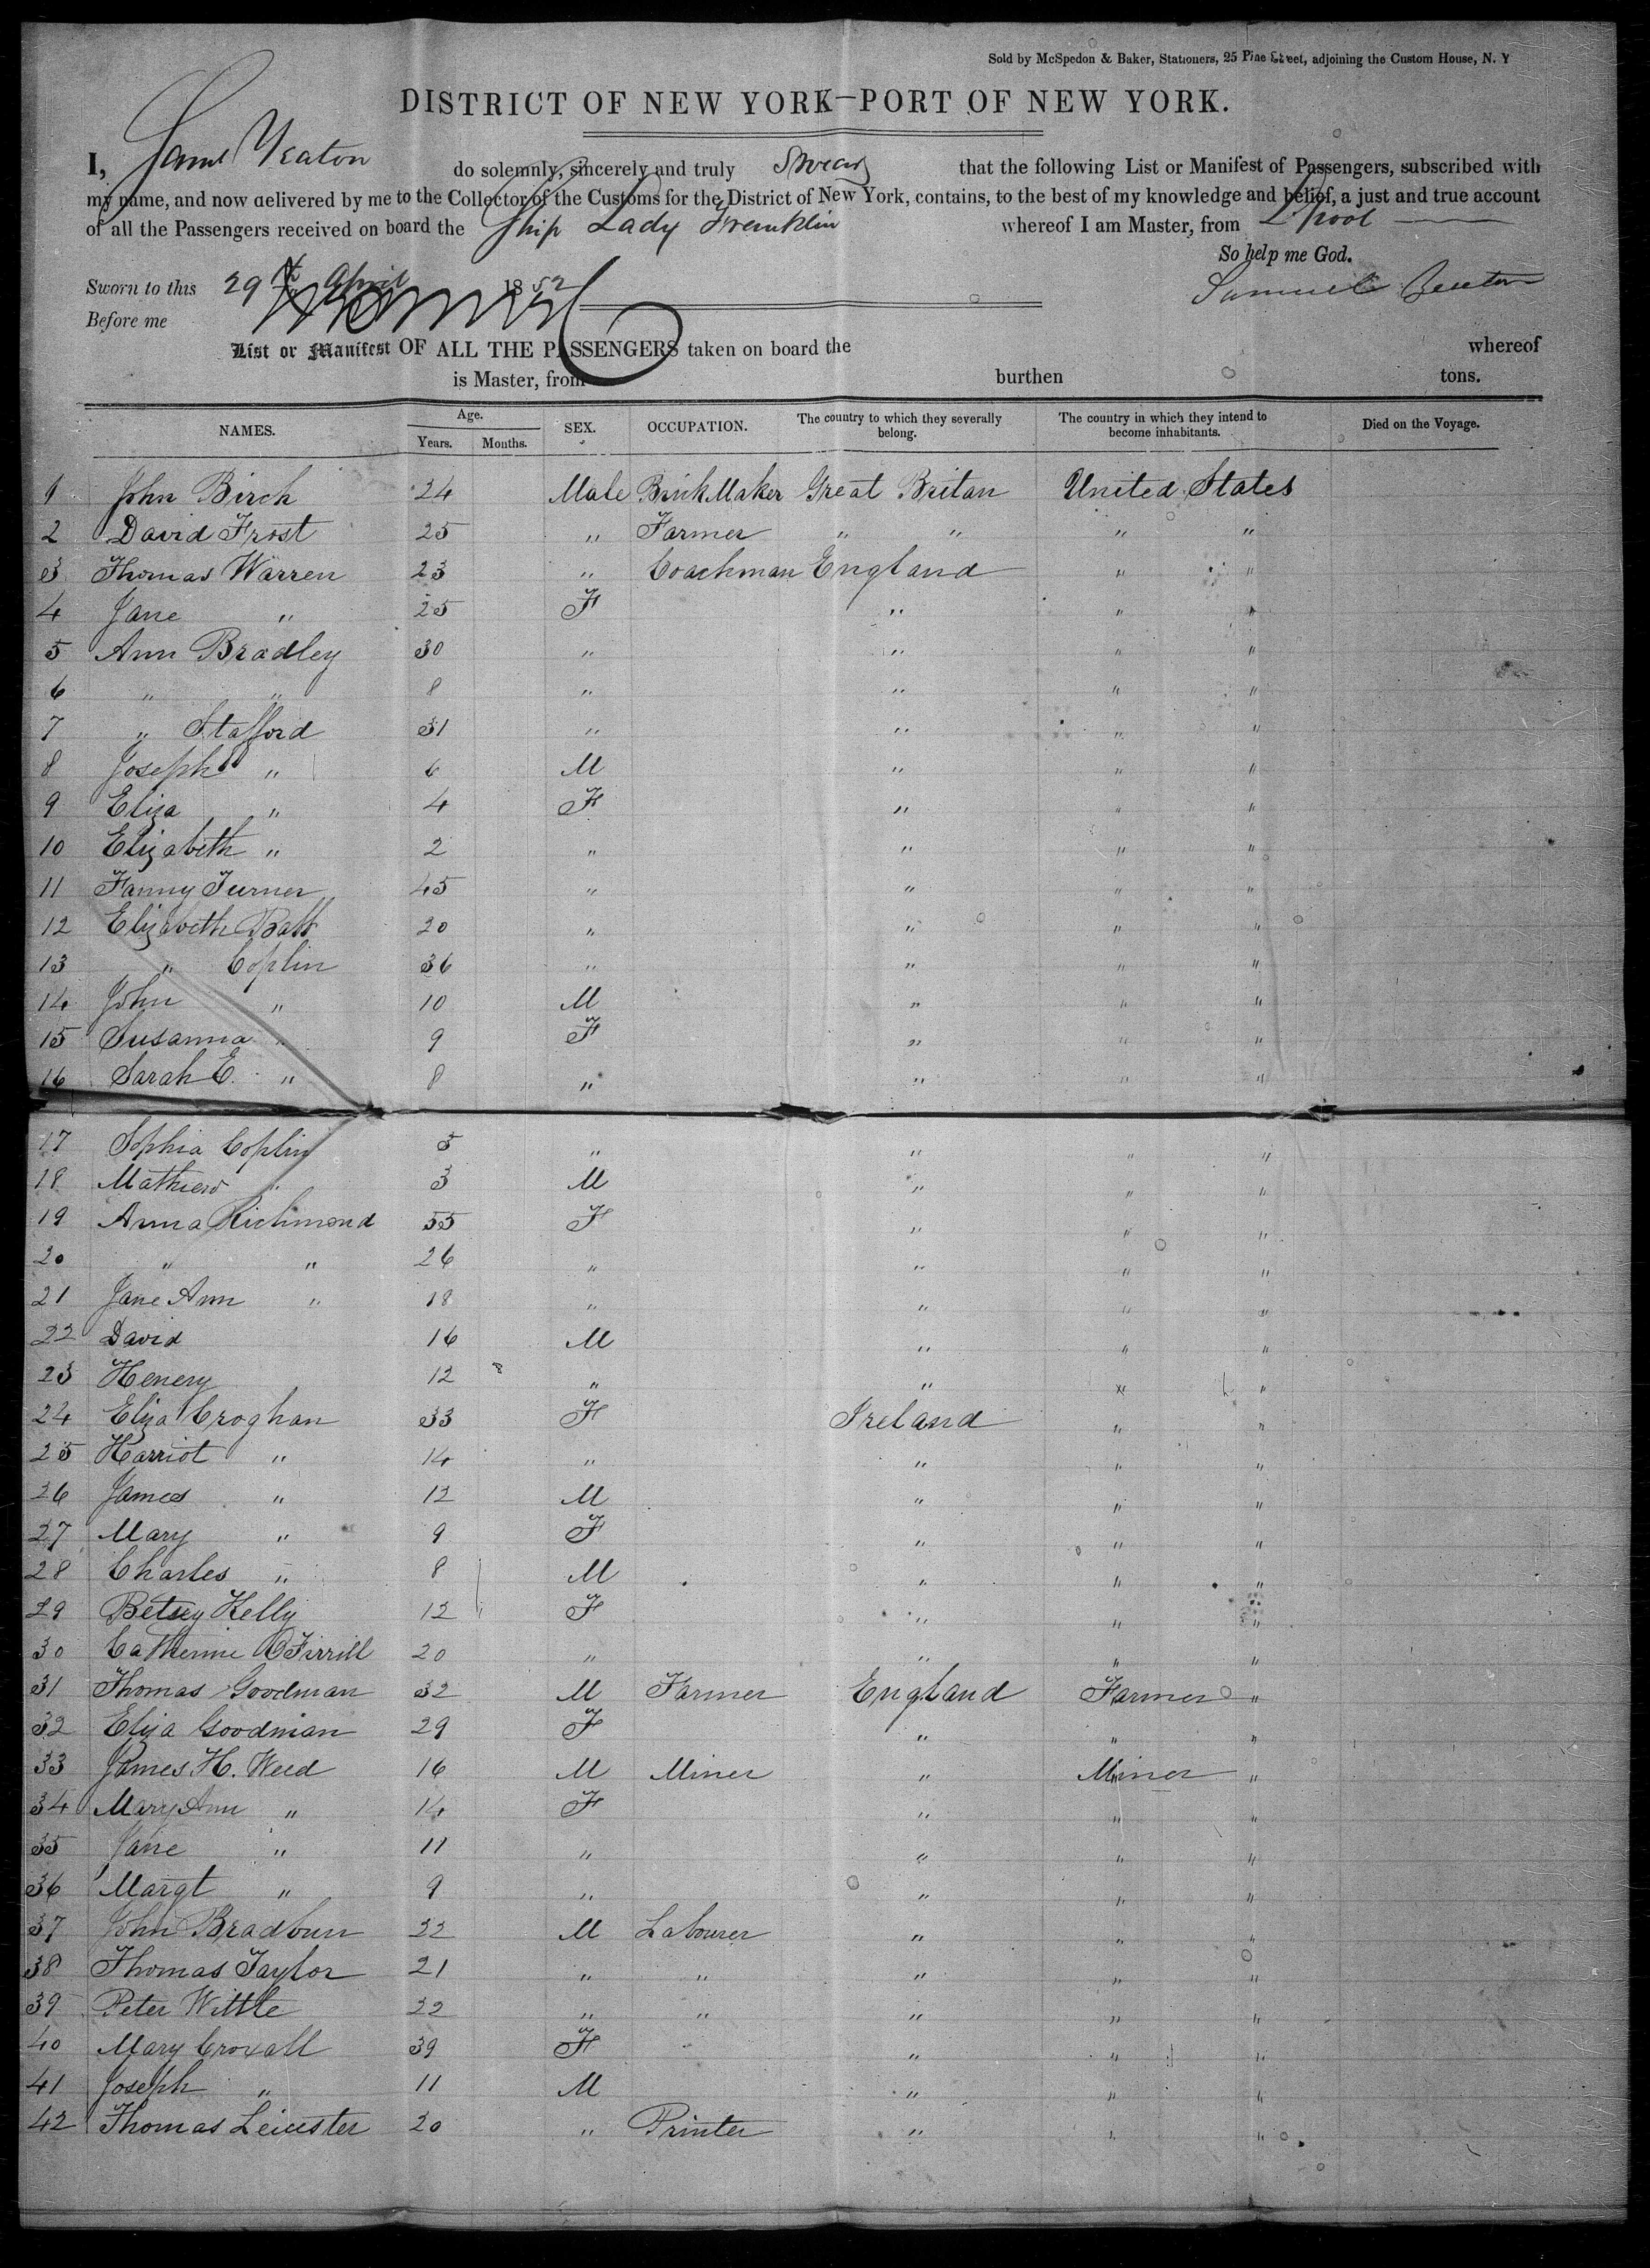 Sold by McSpedon & Baker, Stationers, 25 Pine Street, adjoining the Custom House, N. Y
DISTRICT OF NEW YORK—PORT OF NEW YORK.
I, Saml Yeaton do solemnly, sincerely and truly Swear that the following List or Manifest of Passengers, subscribed with
my name, and now delivered by me to the Collector of the Customs for the District of New York, contains, to the best of my knowledge and belief, a just and true account
of all the Passengers received on board the Ship Lady Franklin whereof I am Master, from L'pool
So help me God.
Sworn to this 29th April 1852 Samuel Yeaton
Before me
List or Manifest OF ALL THE PASSENGERS taken on board the whereof
is Master, from burthen tons.
NAMES. Age. Years. Months. SEX. OCCUPATION. The country to which they severally belong. The country in which they intend to become inhabitants. Died on the Voyage.
1 John Birch 24 Male Brick Maker Great Britan United States
2 David Frost 25 " Farmer " " " "
3 Thomas Warren 23 " Coachman England " "
4 Jane " 25 F " " "
5 Ann Bradley 30 " " " "
6 " " 8 " " " "
7 " Stafford 31 " " " "
8 Joseph " 6 M " " "
9 Eliza " 4 F " " "
10 Elizabeth " 2 " " " "
11 Fanny Turner 45 " " " "
12 Elizabeth Batt 20 " " " "
13 " Coplin 36 " " " "
14 John " 10 M " " "
15 Susanna " 9 F " " "
16 Sarah E. " 8 " " " "
17 Sophia Coplin 5 " " " "
18 Mathiew " 3 M " " "
19 Anna Richmond 55 F " " "
20 " " 26 " " " "
21 Jane Ann " 18 " " " "
22 David 16 M " " "
23 Henery 12 " " " "
24 Eliza Croghan 33 F Ireland " "
25 Harriot " 14 " " " "
26 James " 12 M " " "
27 Mary " 9 F " " "
28 Charles " 8 M " " "
29 Betsey Kelly 12 F " " "
30 Catherine OFirrill 20 " " " "
31 Thomas Goodman 32 M Farmer England Farmer "
32 Eliza Goodman 29 F " " "
33 James H. Weed 16 M Miner " Miner "
34 Mary Ann " 14 F " " "
35 Jane " 11 " " " "
36 Margt " 9 " " " "
37 John Bradburn 22 M Labourer " " "
38 Thomas Taylor 21 " " " " "
39 Peter Wittle 22 " " " " "
40 Mary Croxall 39 F " " "
41 Joseph " 11 M " " "
42 Thomas Leicester 20 " Printer " " "